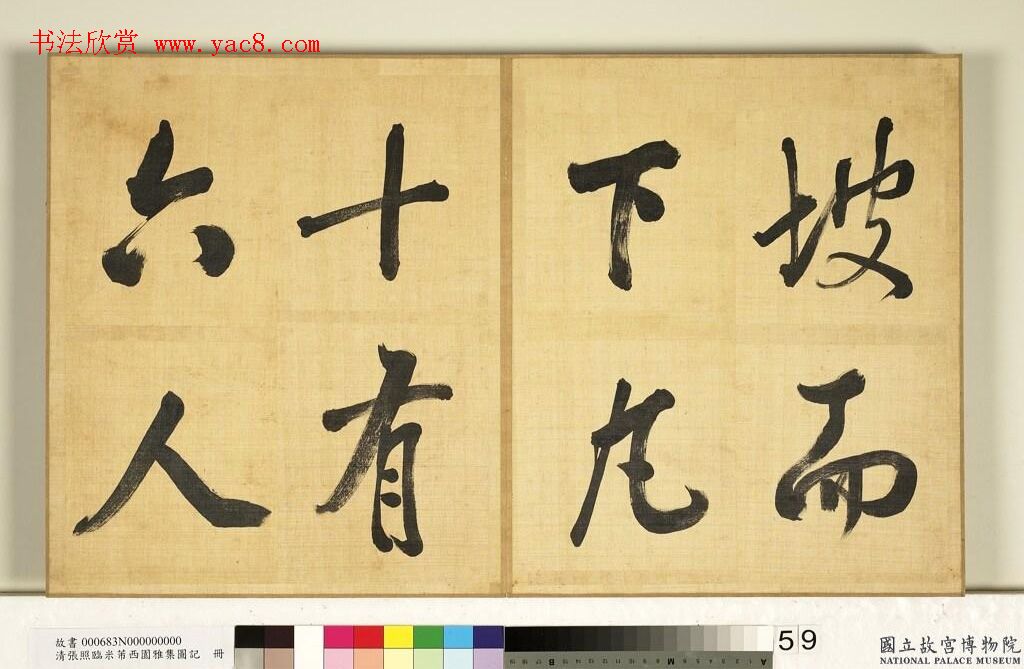 书法欣赏 www.yac8.com
坡而
下凡
十有
六人
故書 000683N000000000
清張照臨米芾西園雅集圖記 冊
59
國立故宮博物院
NATIONAL PALACE MUSEUM